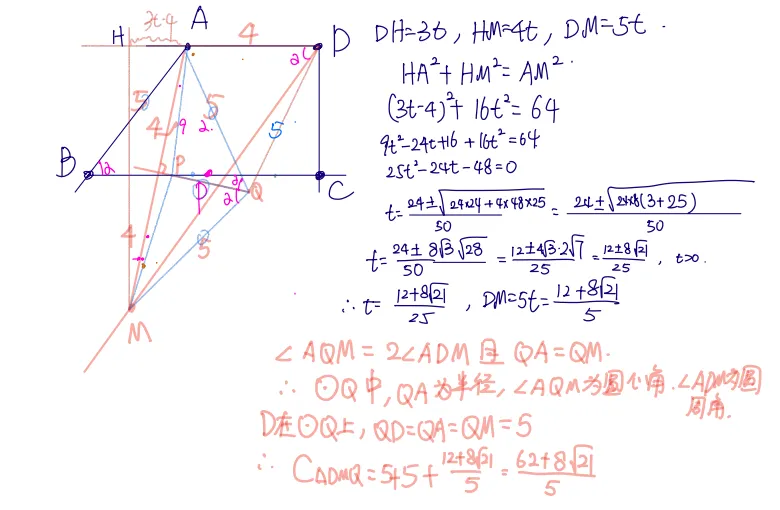 3t-4
H
A
4
D
2α
5
5
5
4
9
2
B
P
Q
C
2α
2α
4
5
M
DH=3t, HM=4t, DM=5t.
HA²+HM²=AM².
(3t-4)²+16t²=64
9t²-24t+16+16t²=64
25t²-24t-48=0
t=\frac{24±\sqrt{24×24+4×48×25}}{50}=\frac{24±\sqrt{24×8(3+25)}}{50}
t=\frac{24±8\sqrt{3}\sqrt{28}}{50}=\frac{12±4\sqrt{3}·2\sqrt{7}}{25}=\frac{12±8\sqrt{21}}{25}, t>0.
∴ t=\frac{12+8\sqrt{21}}{25}, DM=5t=\frac{12+8\sqrt{21}}{5}
∠AQM=2∠ADM且QA=QM.
∴ ⊙Q中,QA为半径,∠AQM为圆心角.∠ADM为圆
周角.
D在⊙Q上,QD=QA=QM=5
∴ C△DMQ=5+5+\frac{12+8\sqrt{21}}{5}=\frac{62+8\sqrt{21}}{5}